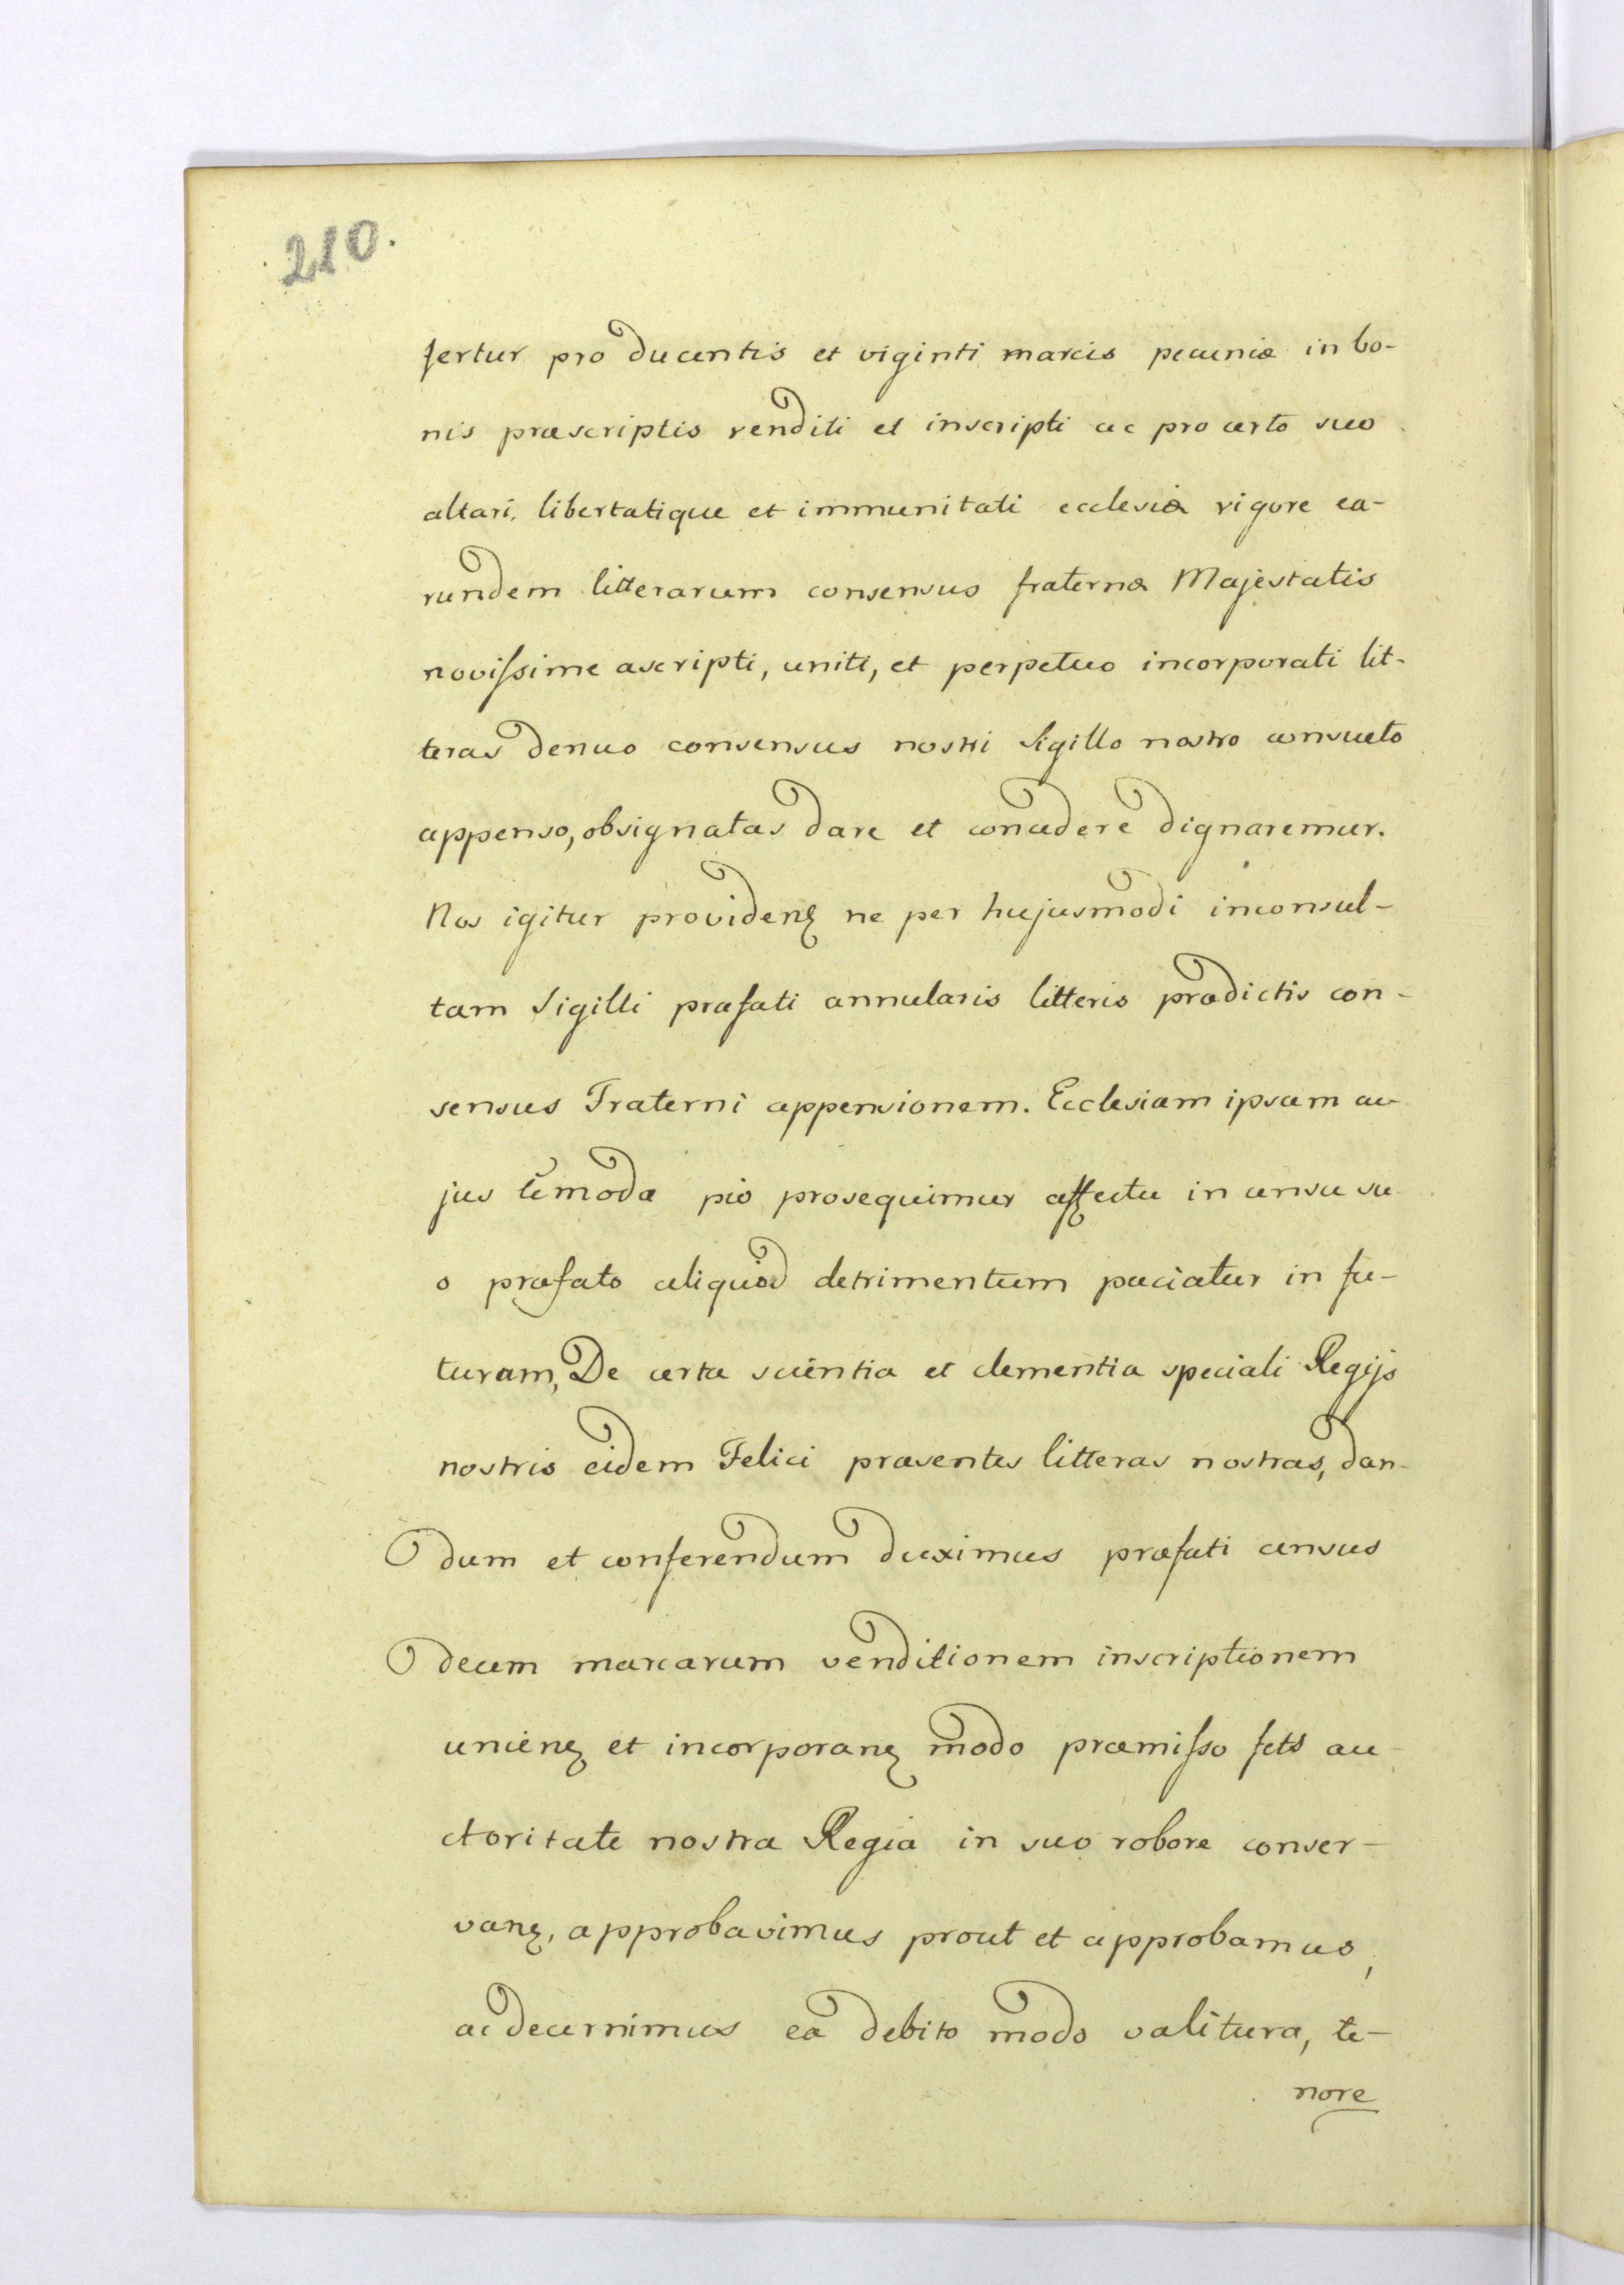 210.
fertur pro ducentis et viginti marcis pecuniæ in bo-
nis præscriptis venditi et inscripti ac pro certo suo
altari, libertatique et immunitati ecclesiæ vigore ea-
rundem litterarum consensus fraternæ Majestatis
novissime ascripti, uniti, et perpetuo incorporati lit-
teras denuo consensus nostri Sigillo nostro consueto
appenso, obsignatas dare et concedere dignaremur.
Nos igitur providenȩ ne per hujusmodi inconsul-
tam Sigilli præfati annularis litteris prædictis con-
sensus Fraterni appensionem. Ecclesiam ipsam cu-
jus pio prosequimur affectu in censu su
o præfato aliquod detrimentum paciatur in fu-
turam, De certa scientia et clementia speciali Regijs
nostris eidem Felici præsentes litteras nostras, dan-
dum et conferendum duximus præfati census
decem marcarum venditionem inscriptionem
unienȩ et incorporanȩ modo præmisso fcts au
ctoritate nostra Regia in suo robore conser-
vanȩ, approbavimus prout et approbamus,
ac decernimus ea debito modo valitura, te-
nore